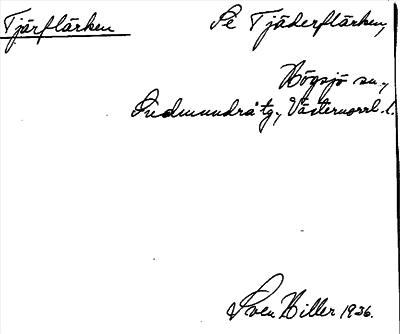 Tjärflärken Se Tjäderflärken,
Högsjö sn.,
Gudmundrå tg., Västernorrl. l.
Sven Hiller 1936.